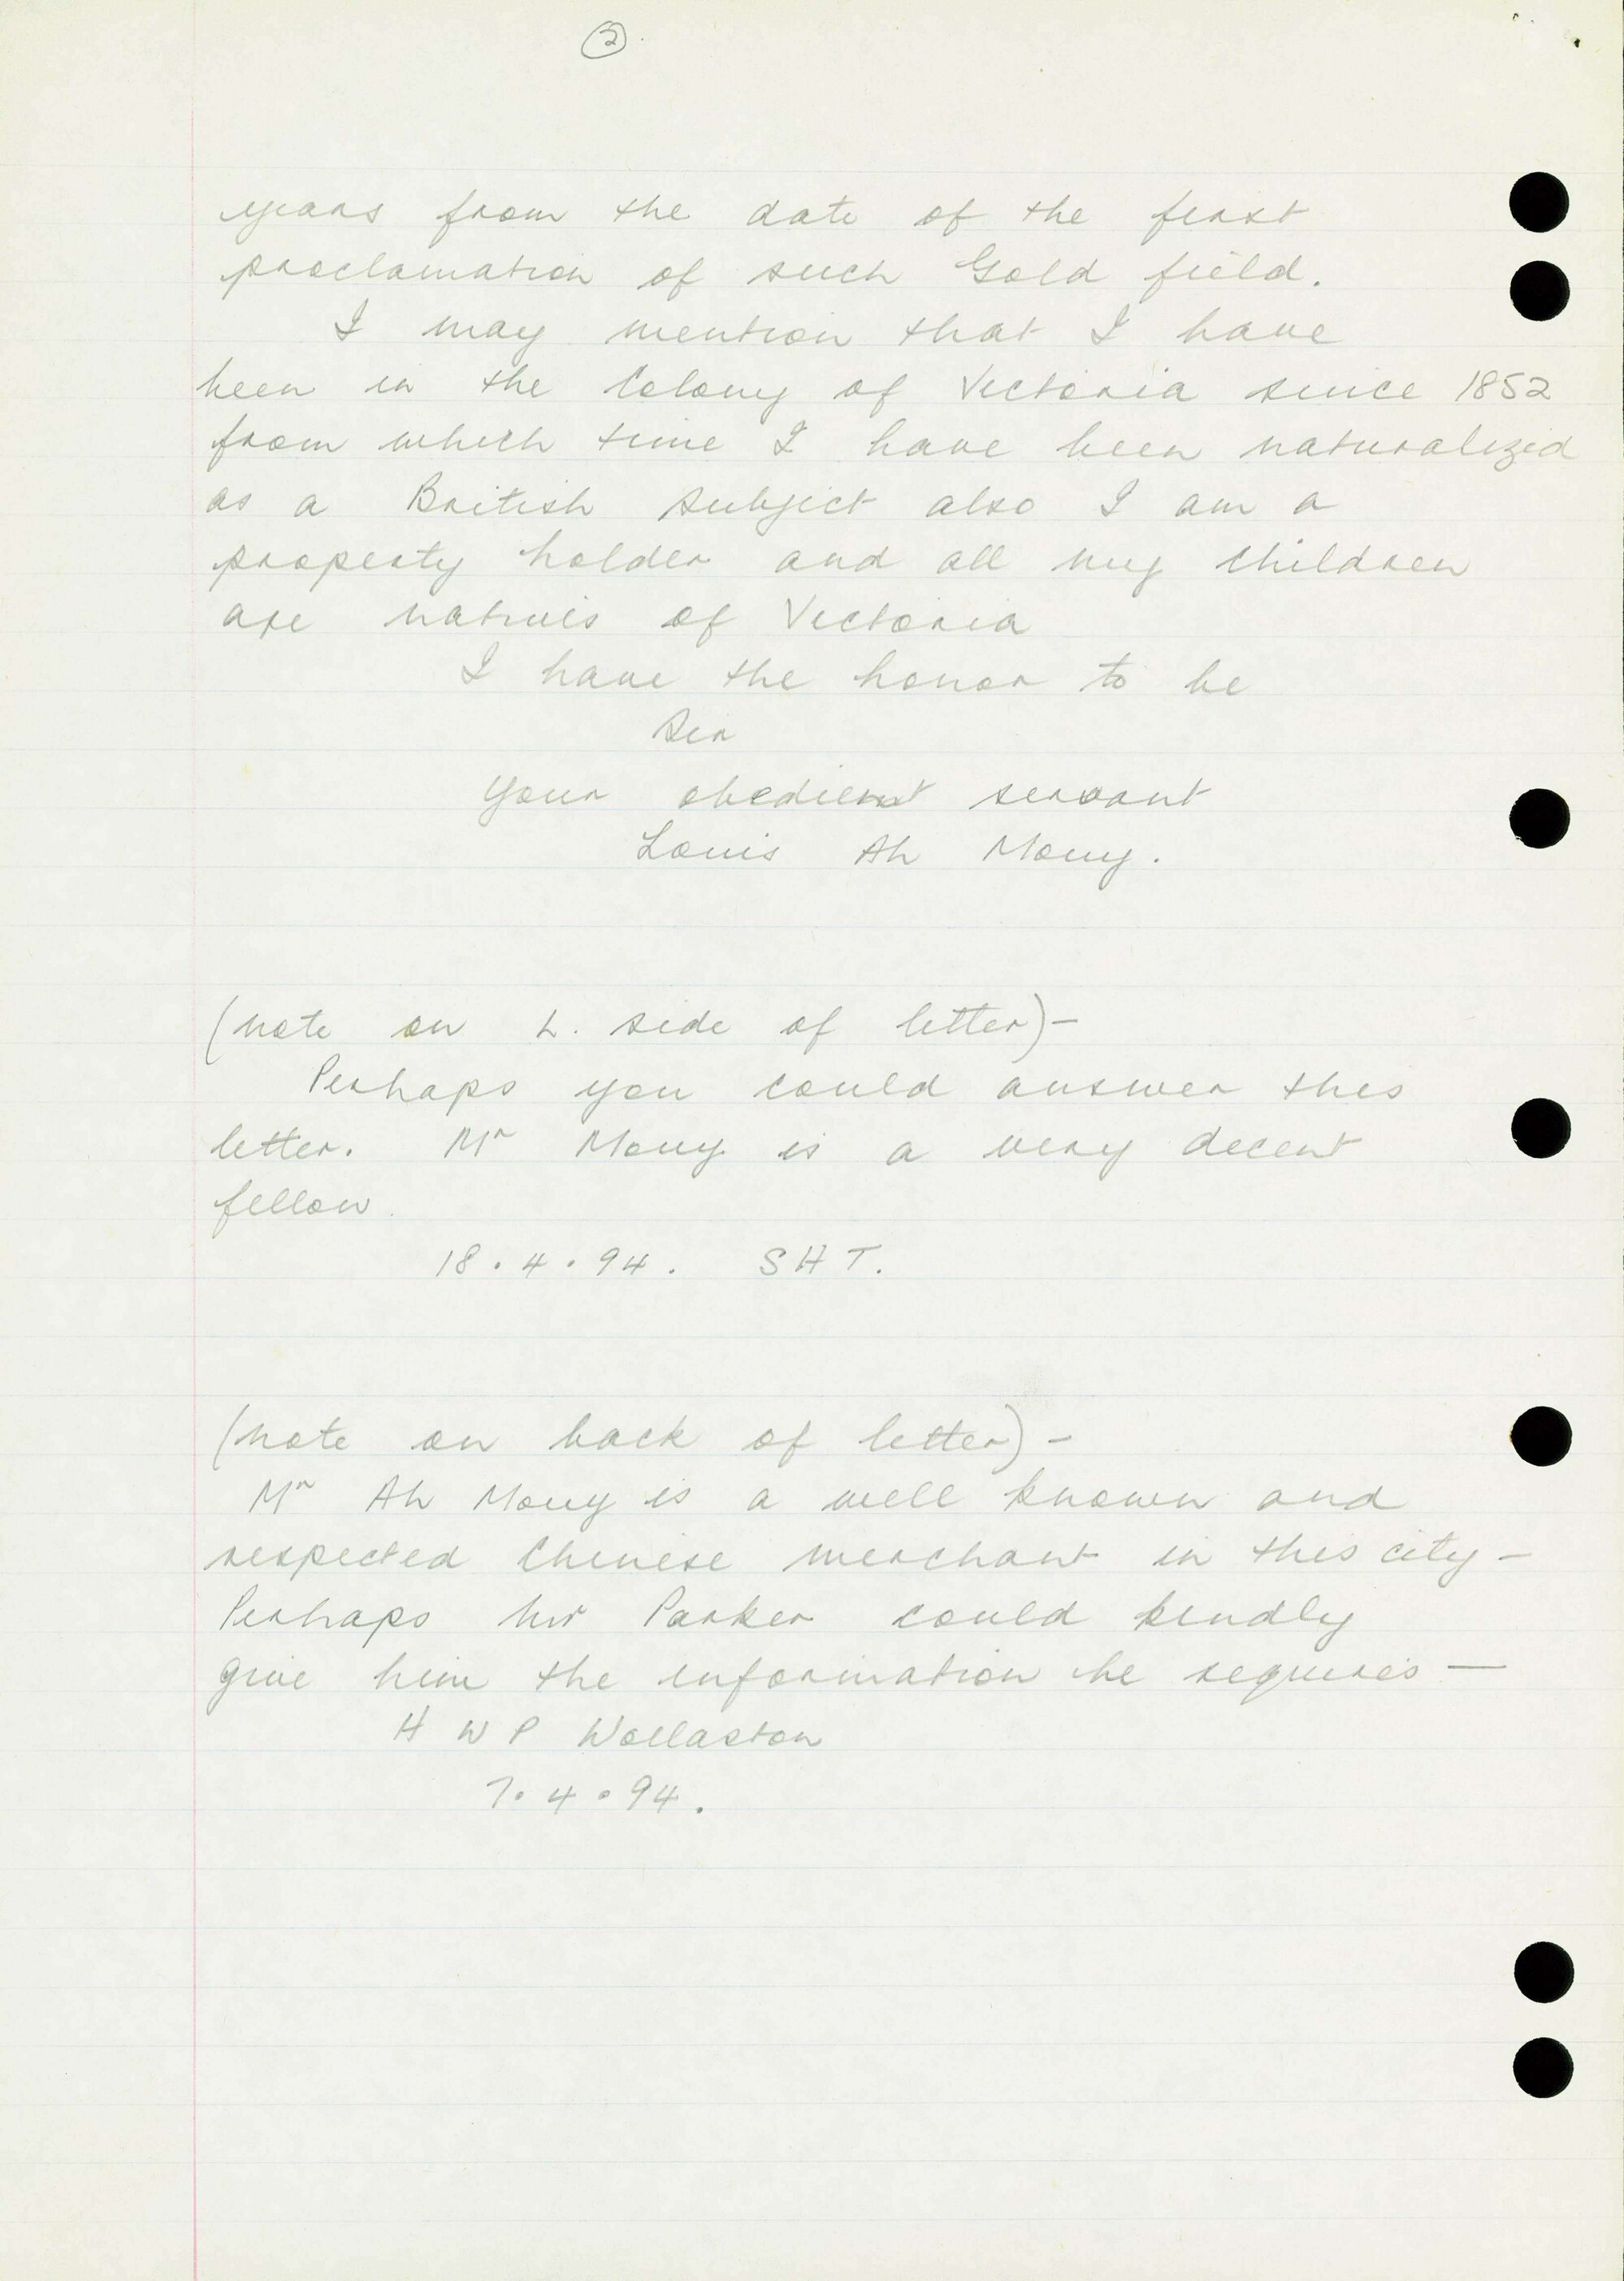 2
years from the date of the first
proclamation of such Gold field.
I may mention that I have
been in the Colony of Victoria since 1852
from which time I have been naturalized
as a British subject also I am a
property holder and all my children
are natives of Victoria
I have the honor to be
Sir
Your obedient servant
Louis Ah Mouy.
(note on L. side of letter) –
Perhaps you could answer this
letter. Mr Mouy is a very decent
fellow.
18.4.94. SHT.
(note on back of letter) –
Mr Ah Mouy is a well known and
respected Chinese merchant in this city –
Perhaps Mr Parker could kindly
give him the information he requires —
H W P Wollaston
7.4.94.